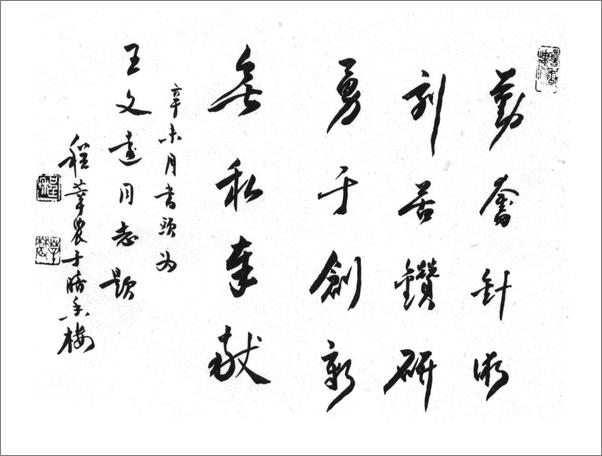 勤奮針術
刻苦鑽研
勇于創新
無私奉献
辛未月書頭为
王文遠同志題
程莘農于樓